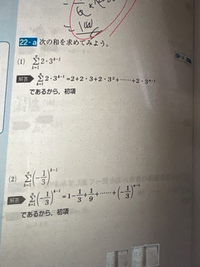 22-a 次の和を求めてみよう。
(1) $\sum_{k=1}^{n} 2 \cdot 3^{k-1}$
解答 $\sum_{k=1}^{n} 2 \cdot 3^{k-1} = 2 + 2 \cdot 3 + 2 \cdot 3^2 + \cdots\cdots + 2 \cdot 3^{n-1}$
であるから、初項
(2) $\sum_{k=1}^{n} \left(-\frac{1}{3}\right)^{k-1}$
解答 $\sum_{k=1}^{n} \left(-\frac{1}{3}\right)^{k-1} = 1 - \frac{1}{3} + \frac{1}{9} + \cdots\cdots + \left(-\frac{1}{3}\right)^{n-1}$
であるから、初項